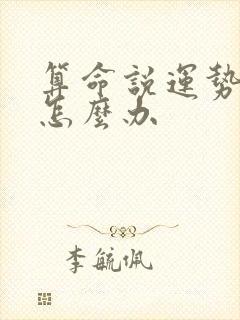 算命説運勢
怎麼办
李毓佩